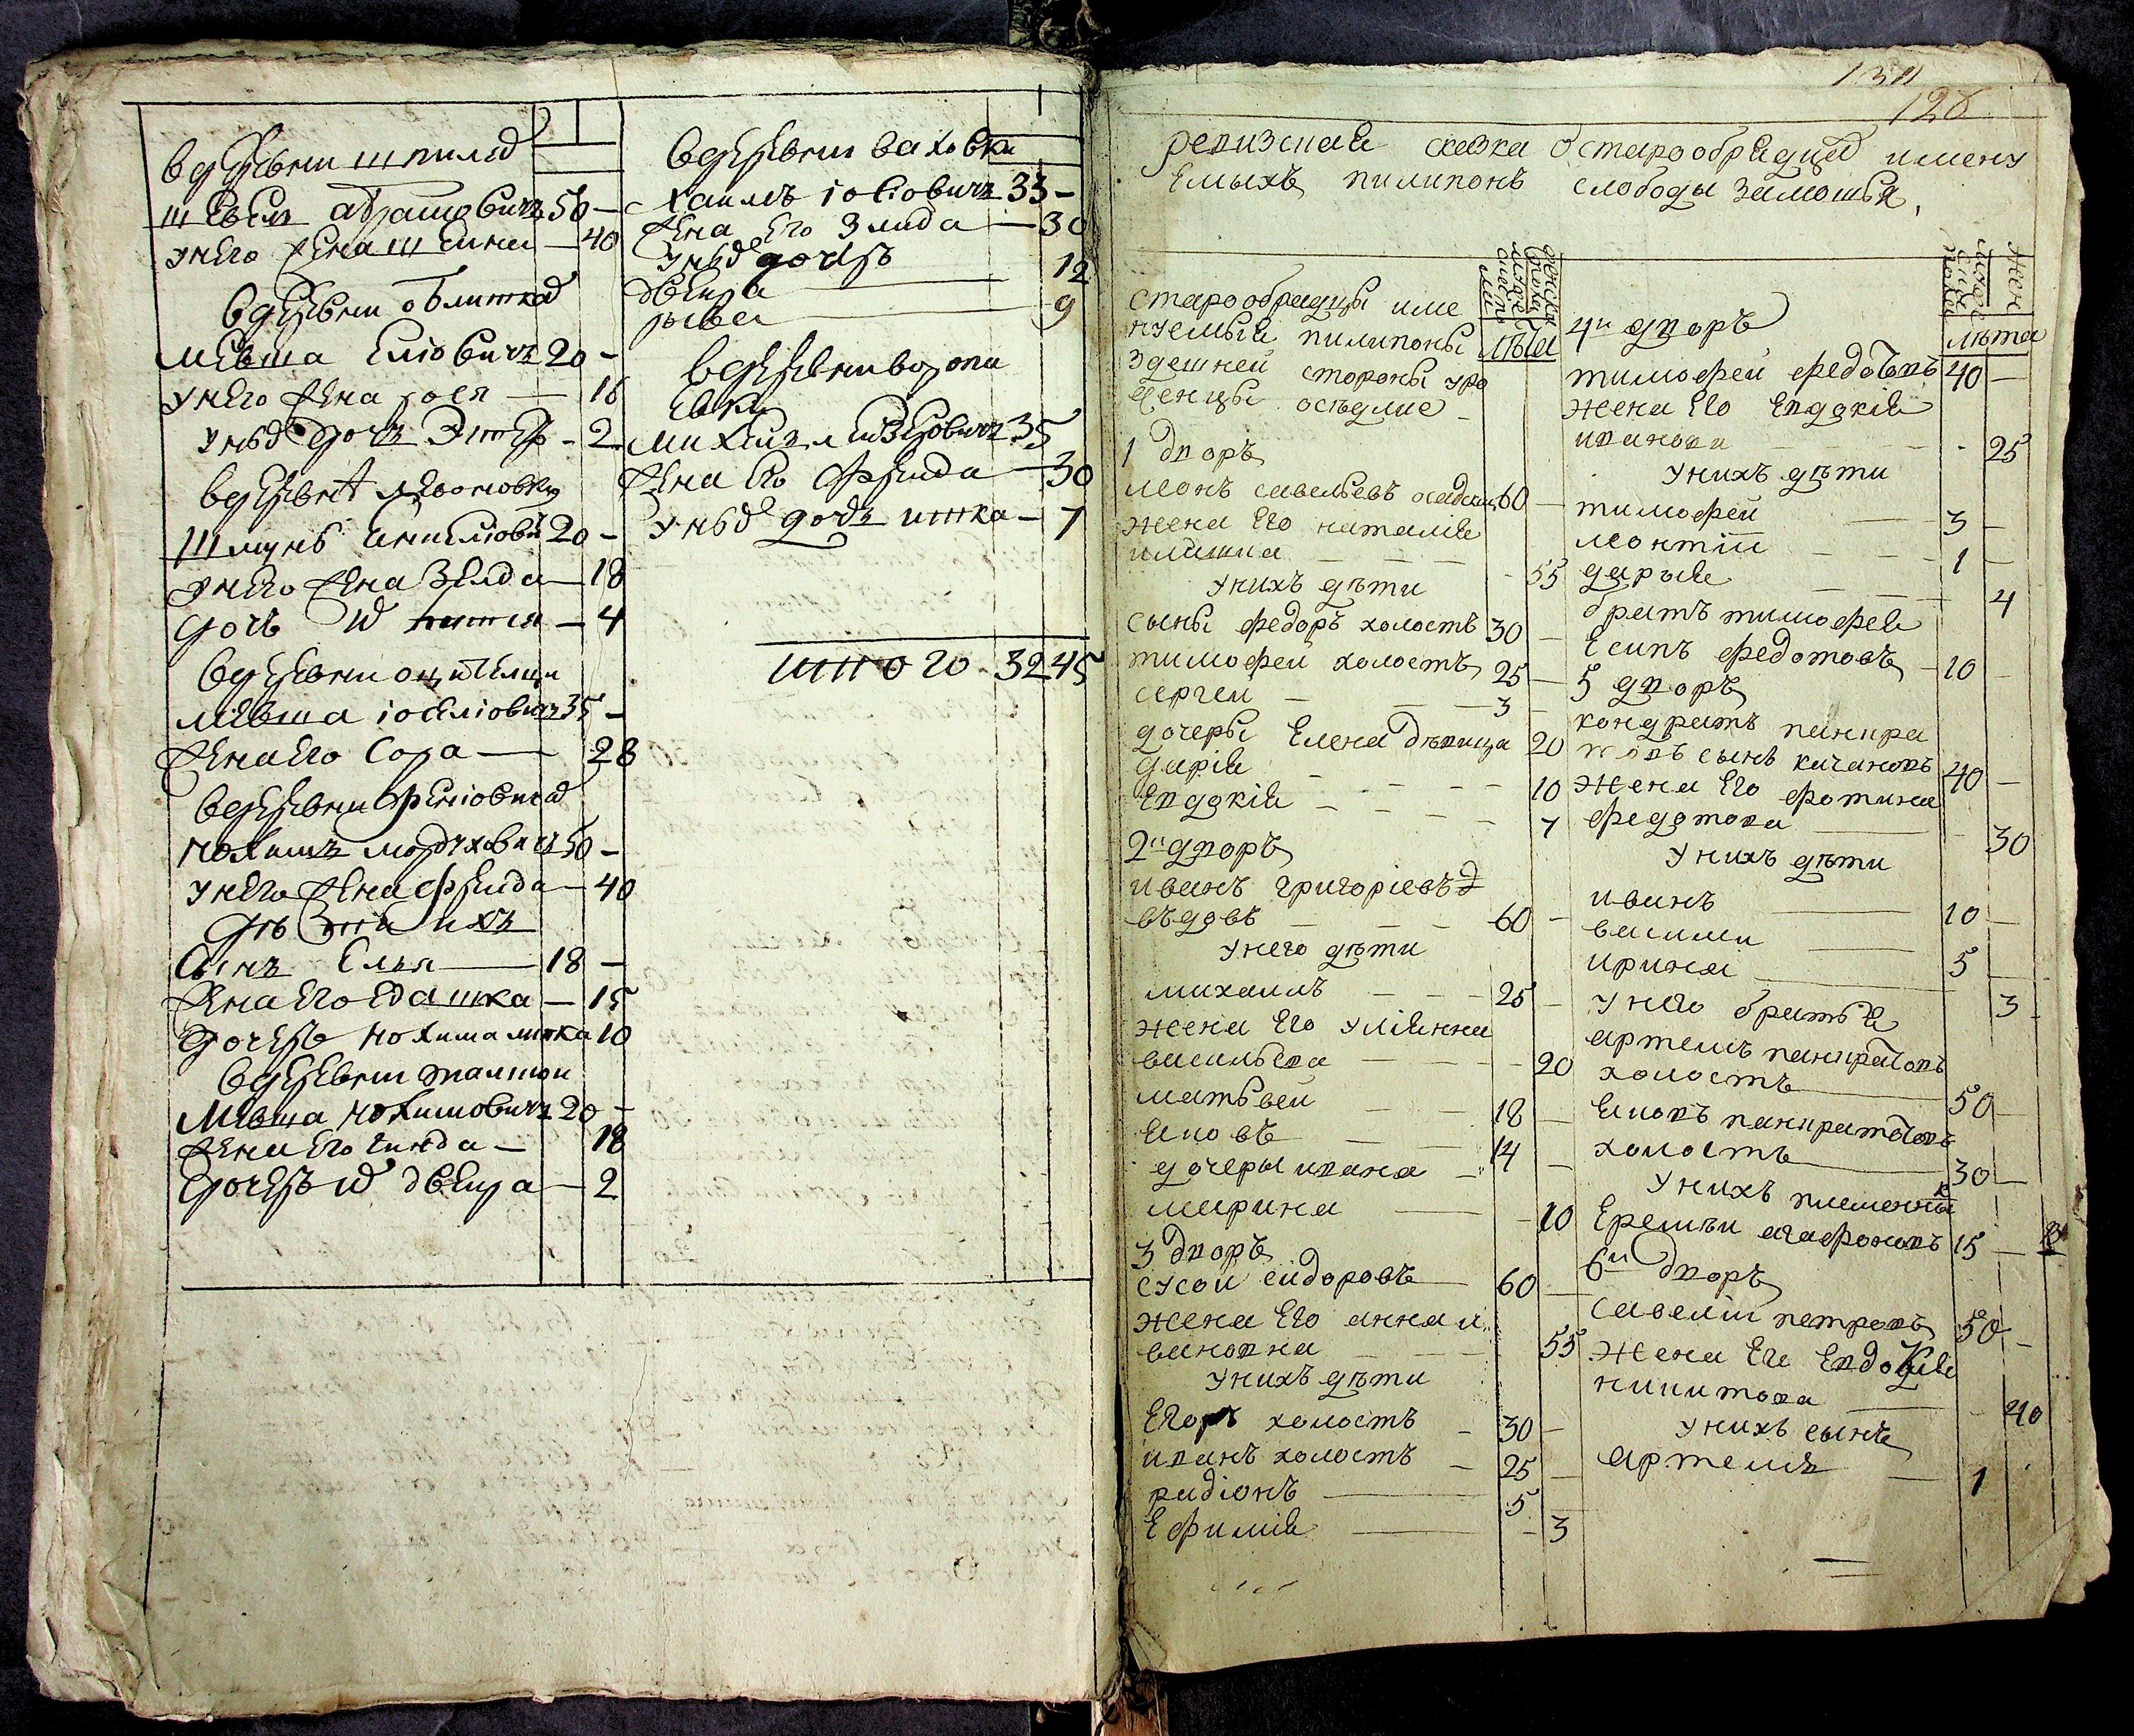 вдеревни шпилѣ
шевел абрамовичъ 50 —
унего жена шейна — 40
вдеревни облиткѣ
мевша елiовичъ 20 —
унего жена рося — 16
унѣх дочъ Эстеръ - 2
вдеревнѣ леоновку
Шмунъ 20 —
унего жена Зелда — 18
дочъ — 4
вдеревни
мевша iоселiовичъ 35 —
жена его Сора — 28
вдеревни
нохимъ мордуховичъ 50 —
унего жена фрейда — 40
дѣти ихъ
Сынъ Елья — 18 —
жена его едашка — 15
дочерь нохима мирка 10
вдеревни
Мевша нохимовичъ 20 —
жена его гинда — 18
дочерь двейра — 2
вдеревни заховки
хаимъ iосiовичъ 33 —
жена его Злида — 30
унѣх дочерь
двейра — 12
рывеа — 9
вдеревни воропа
евки
михель лейзеровичъ 35
жена его фрейда — 30
унѣх дочь итка — 7
итого 32 45
131
128
ревизская сказка о старообрядцах имену
емыхъ пилипонъ слободы замошья
старообрядцы име
нуемыя пилипоны
здешней стороны уро
женцы оседлие
лѣта
1 дворъ
леонъ савельевъ 60 —
жена его наталия
илiинна — 55
унихъ дѣти
сыны федоръ холостъ 30 —
тимофей холостъ 25 —
сергей — 3 —
дочеры Елена дѣвица 20
дария — 10
евдокия — 7
2й дворъ
иванъ григорiевъ
въдовъ — 60 —
унего дѣти
михаилъ — 25 —
жена его улiянна
васильева — 20
матвеи — 18 —
яковъ — 14 —
дочеры ивана
марина — 10
3 дворъ
сусой сидоровъ 60 —
жена его анна и
вановна — 55
унихъ дѣти
Егоръ холостъ — 30 —
иванъ холостъ — 25 —
радiонъ — 5 —
Ефимiя — 3
лѣта
4й дворъ
тимофеи федотовъ 40 —
жена его евдокiя
иванова — 25
унихъ дѣти
тимофеи — 3 —
леонтiи — 1 —
дарья — 4
братъ тимофея
Есипъ федотовъ — 10 —
5 дворъ
кондратъ панкра
товъ сынъ качановъ 40 —
жена его фотина
федотова — 30
унихъ дѣти
иванъ — 10 —
василии — 5 —
ирина — 3
унего братья
артемъ панкратовъ
холостъ — 50 —
яковъ панкратовъ
холостъ — 30 —
унихъ племенникъ
Еремѣи агафоновъ 15 —
6й дворъ
савелiи петровъ 50 —
жена его евдокия
никитова — 40
унихъ сынъ
артемъ — 1